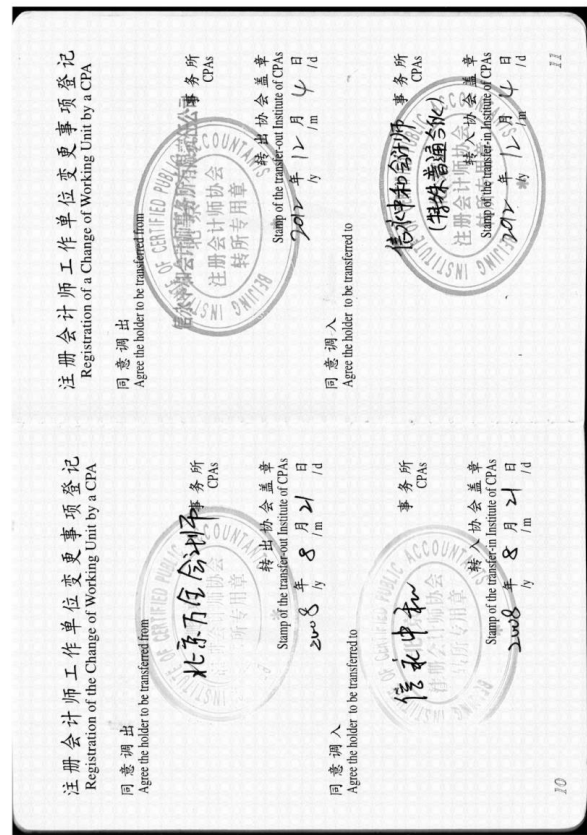 注册会计师工作单位变更事项登记
Registration of the Change of Working Unit by a CPA
同意调出
Agree the holder to be transferred from
北京万全会计师
事务所
CPAs
BEIJING INSTITUTE OF CERTIFIED PUBLIC ACCOUNTANTS
注册会计师协会
转所专用章
转出协会盖章
Stamp of the transfer-out Institute of CPAs
2008 年 8 月 21 日
/y /m /d
同意调入
Agree the holder to be transferred to
信永中和
事务所
CPAs
BEIJING INSTITUTE OF CERTIFIED PUBLIC ACCOUNTANTS
注册会计师协会
转所专用章
转入协会盖章
Stamp of the transfer-in Institute of CPAs
2008 年 8 月 21 日
/y /m /d
10
注册会计师工作单位变更事项登记
Registration of a Change of Working Unit by a CPA
同意调出
Agree the holder to be transferred from
信永中和会计师事务所有限责任公司
事务所
CPAs
BEIJING INSTITUTE OF CERTIFIED PUBLIC ACCOUNTANTS
北京
注册会计师协会
转所专用章
转出协会盖章
Stamp of the transfer-out Institute of CPAs
2012 年 12 月 4 日
/y /m /d
同意调入
Agree the holder to be transferred to
信永中和会计师
事务所
(特殊普通合伙)
CPAs
BEIJING INSTITUTE OF CERTIFIED PUBLIC ACCOUNTANTS
注册会计师协会
转所专用章
转入协会盖章
Stamp of the transfer-in Institute of CPAs
2012 年 12 月 4 日
/y /m /d
11